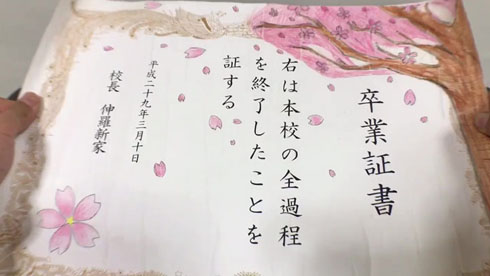 卒業証書
右は本校の全過程
を終了したことを
証する
平成二十九年三月十日
校長 伸羅新家